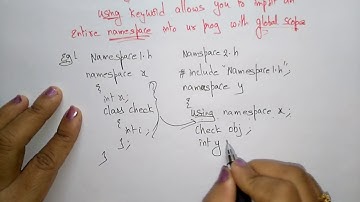 using keyword allows you to import an
Entire namespace into ur prog with global scope
Eg:- Namespace1.h
namespace x
{
int x;
class check
{ int i;
};
}
Namespace2.h
# include "Namespace1.h";
namespace y
{
using namespace x;
check obj;
int y